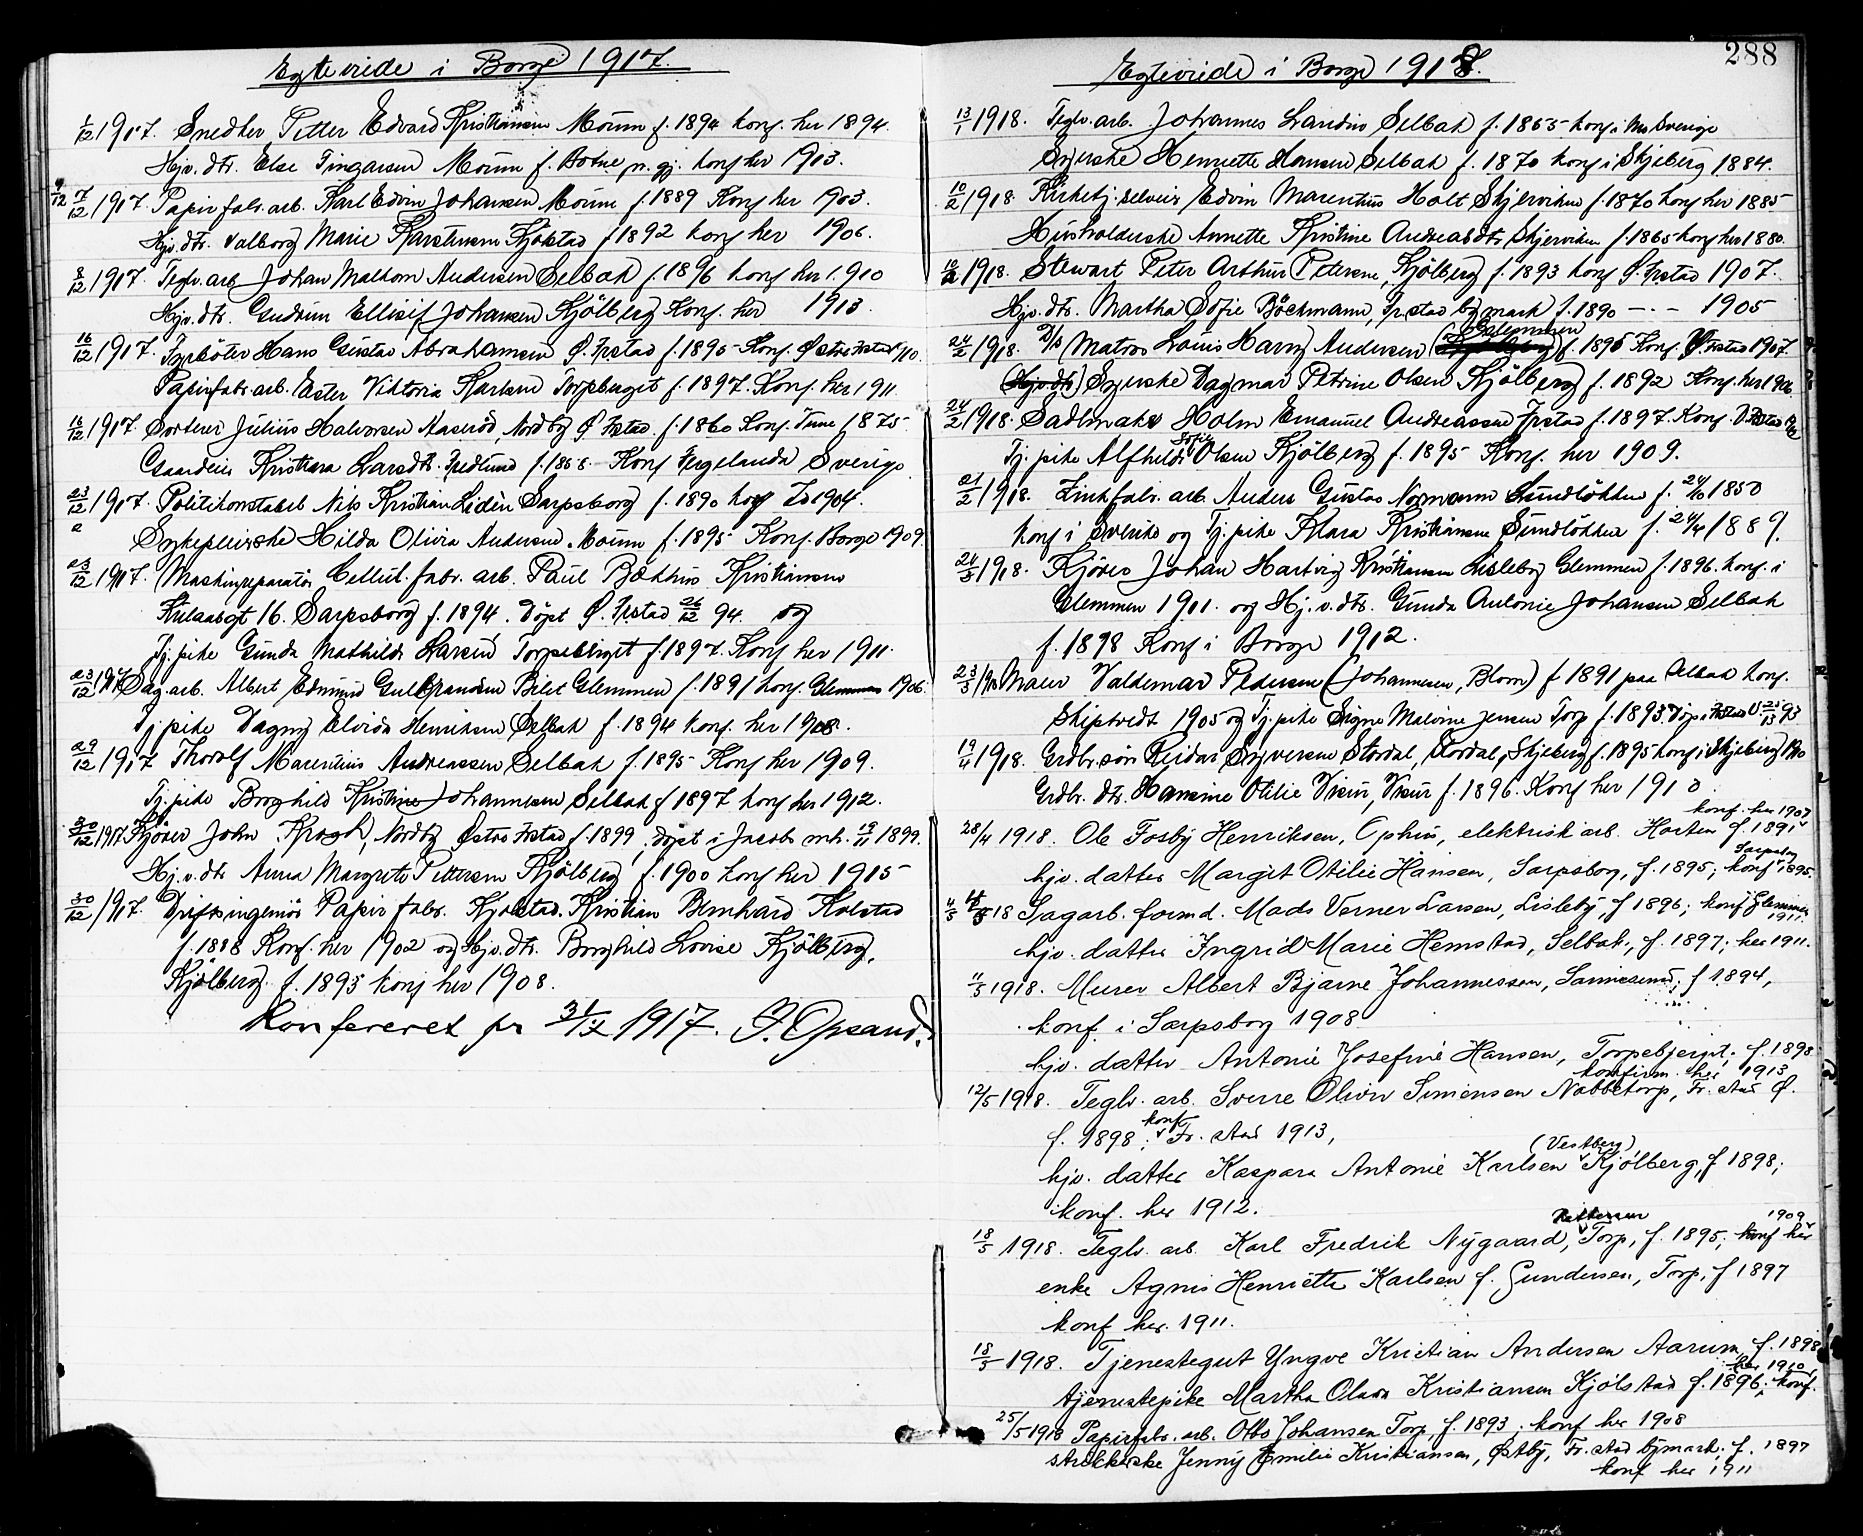 Egteviede i Borge 1917.
1/12 1917. Snedker Petter Edvard Kristiansen Moum f. 1894 konf. her 1894.
Hjv. dtr. Else Tingarsen Moum f. Botne p. gj. konf her 1913.
7/12 1917. Papirfabr. arb. Karl Edvin Johansen Moum f. 1889 Konf her 1903.
Hjv. dtr. Valborg Marie Karstensen Kjølstad f 1892 konf her 1906.
8/12 1917. Teglv. arb Johan Mathorn Andersen Selbak f. 1896 konf her 1910
Hjv. dtr. Gudrun Ellisif Johansen Kjölberg Konf. her 1913.
16/12 1917. Fyrböter Hans Gustav Abrahamsen Ø. Frstad f. 1895 Konf. Østre Frstad 1910.
Papirfabr. arb. Ester Viktoria Karlsen Torpeberget f. 1897. Konf. her 1911.
16/12 1917. Sorterer Julius Halvorsen Naserød, Nordby Ø. Frstad, f. 1860 Konf. Tune 1875
Gaardeier Kristiara Larsdtr. Fredlund f. 1868 Konf Fergelanda Sverige
23/12 1917. Politikonstabel Nils Kristian Lidén Sarpsborg f. 1890 konf Id 1904.
Sykepleierske Hilda Olivia Andersen Moum f. 1895 Konf. Borge 1909.
23/12 1917. Maskinreparatör Cellul. fabr. arb. Paul Bothius Kristiansen
Kulaasgt 16. Sarpsborg f. 1894. Döpt Ø. Frstad 26/12 94. og
Tj. pike Gunda Mathilde Larsen Torpebliget f. 1897. Konf her 1911.
23/12 1917 Sag. arb. Albert Edmund Gulbransen Bilet Glemmen f. 1891 konf. Glemmen 1906.
Tj pike Dagny Elvida Henriksen Selbak f. 1894 konf. her 1908.
29/12 1917 Thorolf Marentius Andreassen Selbak f. 1895 Konf her 1909.
Tj. pike Borghild Kristine Johannesen Selbak f 1897 konf her 1912.
30/12 1917 Kjörer John Krogh, Nordby Østre Frstad f. 1899, döpt i Jacobs mh. 19/11 1899.
Hj. v. dtr Anna Margrete Pettersen Kjölberg f. 1900 konf her 1915
30/12 1917. Driftsingeniör Papir fabr. Kjolstad. Kristian Bernhard Kolstad
f. 1888 Konf. her 1902 og Hjv. dtr. Borghild Lovise Kjölberg,
Kjölberg f. 1893 konf her 1908.
Konfereret pr 31/12 1917. J. Opsand.
288
Egteviede i Borge 1918.
13/1 1918. Teglv. arb. Johannes Landin Selbak f. 1865 konf. i Sverige
Syerske Henriette Hansen Selbak f. 1870 konf i Skjeberg 1884.
10/2 1918. Kirketj. selveier Edvin Marentius Holt Skjerviken f. 1870 konf her 1885
Husholderske Annette Kristine Andreasdtr. Skjerviken f. 1865 konf her 1880.
10/2 1918. Stewart Peter Arthur Petersen, Kjölberg f. 1893 konf Ø. Frstad 1907.
Hjv. dtr. Martha Sofie Böckmann, Frstad bymark f. 1890 - . - 1905
24/2 1918. D/s Matros Louis Harry Andersen (Gateniken) f. 1896 Konf. Ø Frstad 1907.
(Hjv. dtr) Syerske Dagmar Petrine Olsen Kjölberg f. 1892 Konf. her 1906
24/2 1918. Sadlmaker Holm Emanuel Andreassen Frstad f. 1897. Konf. V. Frstad 1912
Tj. pike Alfhild Sofie Olsen Kjölberg f. 1895 Konf. her 1909.
21/2 1918. Zinkfabr. arb. Anders Gustav Normann Sundlökken f. 24/10 1850
konf i Sverike og Tj. pike Klara Kristiansen Sundlökken f. 24/4 1889.
24/3 1918. Kjörer Johan Hartvig Kristiansen Lisleby Glemmen f. 1896. konf. i
Glemmen 1911. og Hj. v. dtr. Gunda Antonie Johansen Selbak
f. 1898 Konf i Borge 1912.
23/3 1918 Maler Valdemar Pedersen (Johannesen, Blom) f 1891 paa Selbak konf.
Skiptvedt 1905 og Tj. pike Signe Malvine Jensen Torp f. 1893. Döp i Frstad V. 93
19/4 1918. Grdbr. sön Reidar Syversen Stordal, Stordal, Skjeberg f. 1895 konf i Skjeberg 1910
Grdbr. dtr. Hansine Otilie Visur, Visur f. 1896. Konf her 1910.
konf. her 1907
28/4 1918. Ole Fosby Henriksen, Ophus, elektrisk arb. Horten f. 1891
Sarpsborg
hjv. datter Margit Otilie Hansen, Sarpsborg, f. 1895; konf 1895.
4/5 18 Sagarb. formd. Mads Verner Larsen, Lisleby, f 1896; konf Glemmen 1911.
hjv. datter Ingrid Marie Hemstad, Selbak, f. 1897; her 1911.
11/5 1918. Murer Albert Bjarne Johannessen, Sannesund, f 1894,
konf. i Sarpsborg 1908
hjv. datter Antonie Josefine Hansen, Torpebjerget; f. 1898
konfirm. her 1913
12/5 1918. Teglv. arb. Sverre Oliver Simensen Nabbetorp, Fr. stad Ø.
f. 1898; konf Fr. stad 1913,
(Vestberg)
hjv. datter Kaspara Antonie Karlsen Kjølberg, f 1898;
konf. her 1912.
Pettersen 1909
18/5 1918. Teglv. arb. Karl Fredrik Nygaard, Torp, f. 1895; konf her
enke Agnes Henriette Karlsen f. Gundersen, Torp, f 1897
konf her. 1911.
18/5 1918. Tjenestegut Yngve Kristian Andersen Aarum, f. 1898
her 1910
tjenestepike Martha Olava Kristiansen Kjølstad f. 1896; konf.
25/5 1918 Papirfabr. arb. Otto Johansen Torp, f. 1893; konf her 1908
strikkerske Jenny Emilie Kristiansen, Østby, Fr. stad bymark, f. 1897
konf her 1911